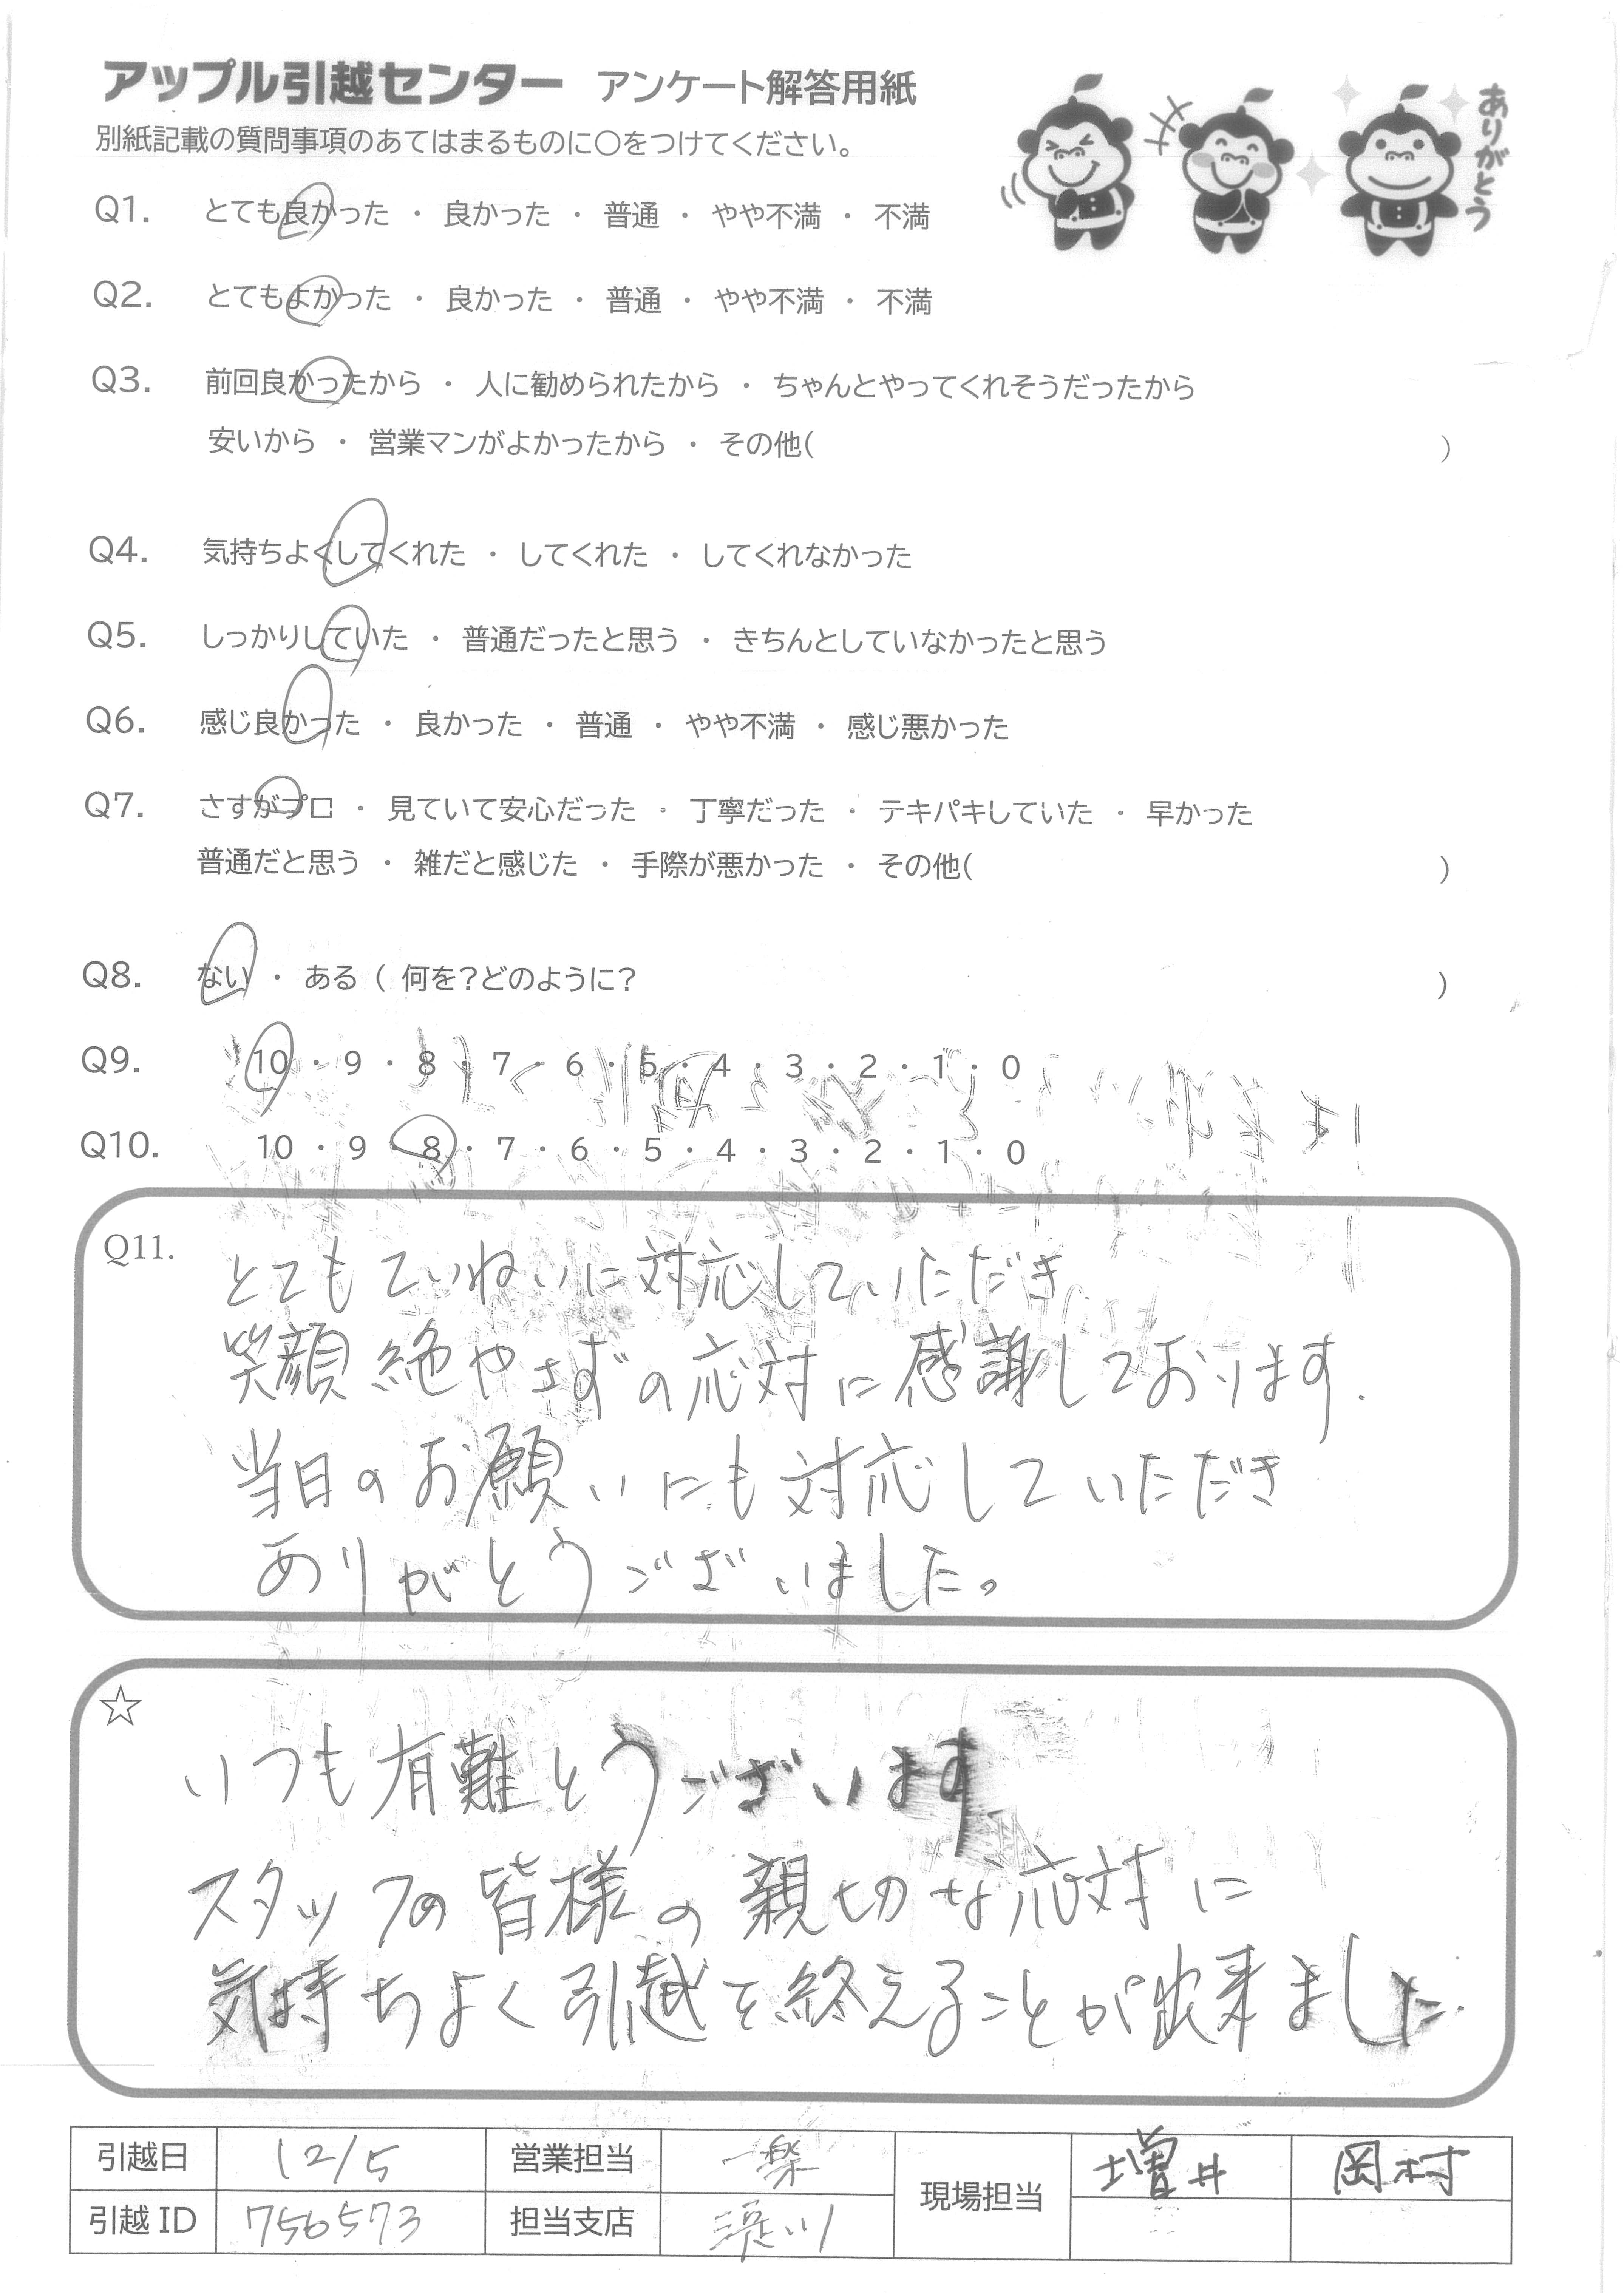 アップル引越センター アンケート解答用紙
別紙記載の質問事項のあてはまるものに○をつけてください。
ありがとう
Q1. とても良かった ・ 良かった ・ 普通 ・ やや不満 ・ 不満
Q2. とてもよかった ・ 良かった ・ 普通 ・ やや不満 ・ 不満
Q3. 前回良かったから ・ 人に勧められたから ・ ちゃんとやってくれそうだったから
安いから ・ 営業マンがよかったから ・ その他( )
Q4. 気持ちよくしてくれた ・ してくれた ・ してくれなかった
Q5. しっかりしていた ・ 普通だったと思う ・ きちんとしていなかったと思う
Q6. 感じ良かった ・ 良かった ・ 普通 ・ やや不満 ・ 感じ悪かった
Q7. さすがプロ ・ 見ていて安心だった ・ 丁寧だった ・ テキパキしていた ・ 早かった
普通だと思う ・ 雑だと感じた ・ 手際が悪かった ・ その他( )
Q8. ない ・ ある ( 何を?どのように? )
Q9. 10 ・ 9 ・ 8 ・ 7 ・ 6 ・ 5 ・ 4 ・ 3 ・ 2 ・ 1 ・ 0
Q10. 10 ・ 9 ・ 8 ・ 7 ・ 6 ・ 5 ・ 4 ・ 3 ・ 2 ・ 1 ・ 0
Q11. とてもていねいに対応していただき
笑顔絶やさずの応対に感謝しております.
当日のお願いにも対応していただき
ありがとうございました。
☆
いつも有難とうございます
スタッフの皆様の親切な応対に
気持ちよく引越を終えることが出来ました.
引越日 12/5 営業担当 現場担当 増井 岡村
引越ID 756573 担当支店 淀川